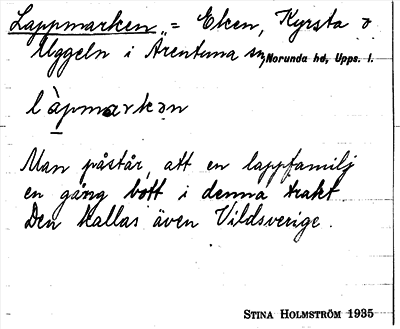 Lappmarken = Eken, Kyrsta o
Uggeln i Ärentuna sn, Norunda hd, Upps. l.
làpmarkən
Man påstår, att en lappfamilj
en gång bott i denna trakt.
Den kallas även Vildsverige.
STINA HOLMSTRÖM 1935